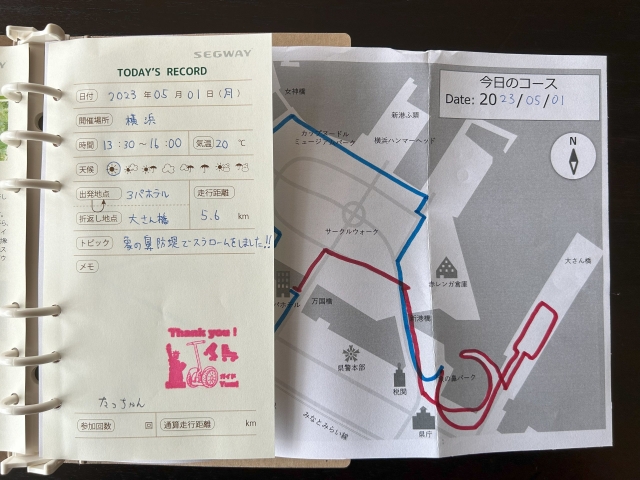 SEGWAY
TODAY'S RECORD
日付 2023 年 05 月 01 日 (月)
開催場所 横浜
時間 13:30〜16:00 気温 20 ℃
天候
出発地点 3パホテル 走行距離
折返し地点 大さん橋 5.6 km
トピック 象の鼻防堤でスラロームをしました!!
メモ
Thank you!
ガイド
たっちゃん
参加回数 回 通算走行距離 km
今日のコース
Date: 2023/05/01
N
女神橋
新港ふ頭
カップヌードル
ミュージアムパーク
横浜ハンマーヘッド
サークルウォーク
大さん橋
赤レンガ倉庫
万国橋
新港橋
県警本部
税関
の鼻パーク
県庁
みなとみらい線